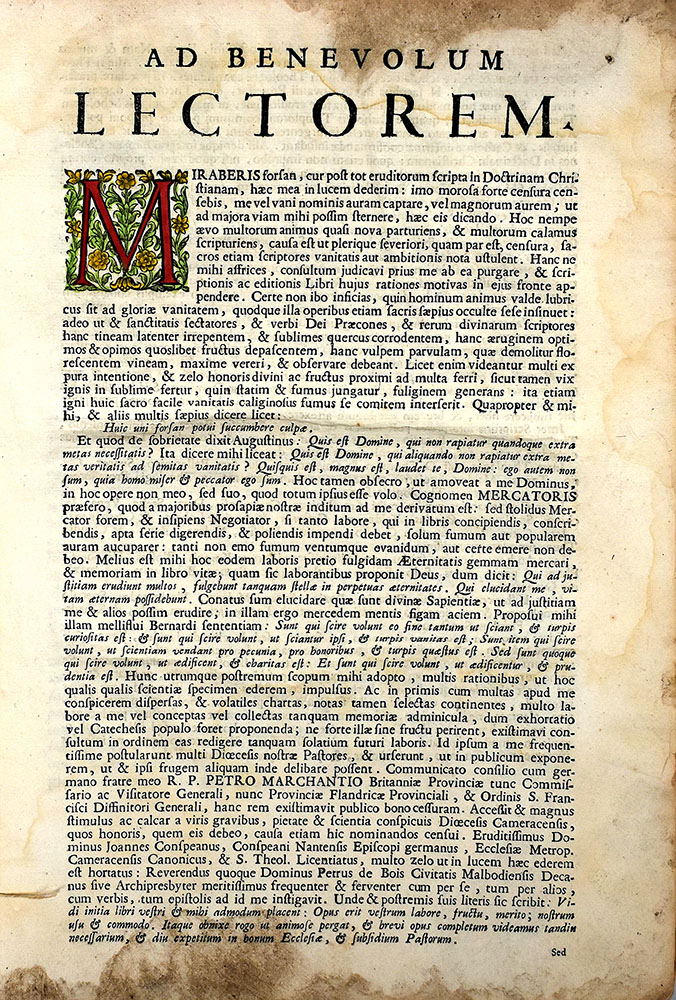 AD BENEVOLUM
LECTOREM.
MIRABERIS forsan, cur post tot eruditorum scripta in Doctrinam Chri-
stianam, hæc mea in lucem dederim: imo morosa forte censura cen-
sebis, me vel vani nominis auram captare, vel magnorum aurem; ut
ad majora viam mihi possim sternere, hæc eis dicando. Hoc nempe
ævo multorum animus quasi nova parturiens, & multorum calamus
scripturiens, causa est ut plerique severiori, quam par est, censura, sa-
cros etiam scriptores vanitatis aut ambitionis nota ustulent. Hanc ne
mihi affrices, consultum judicavi prius me ab ea purgare, & scri-
ptionis ac editionis Libri hujus rationes motivas in ejus fronte ap-
pendere. Certe non ibo inficias, quin hominum animus valde lubri-
cus sit ad gloriæ vanitatem, quodque illa operibus etiam sacris sæpius occulte sese insinuet:
adeo ut & sanctitatis sectatores, & verbi Dei Præcones, & rerum divinarum scriptores
hanc tineam latenter irrepentem, & sublimes quercus corrodentem, hanc æruginem opti-
mos & opimos quoslibet fructus depascentem, hanc vulpem parvulam, quæ demolitur flo-
rescentem vineam, maxime vereri, & observare debeant. Licet enim videantur multi ex
pura intentione, & zelo honoris divini ac fructus proximi ad multa ferri, sicut tamen vix
ignis in sublime fertur, quin statim & fumus jungatur, fuliginem generans: ita etiam
igni huic sacro facile vanitatis caliginosus fumus se comitem interserit. Quapropter & mi-
hi, & aliis multis sæpius dicere licet:
Huic uni forsan potui succumbere culpæ.
Et quod de sobrietate dixit Augustinus: Quis est Domine, qui non rapiatur quandoque extra
metas necessitatis? Ita dicere mihi liceat: Quis est Domine, qui aliquando non rapiatur extra me-
tas veritatis ad semitas vanitatis? Quisquis est, magnus est, laudet te, Domine: ego autem non
sum, quia homo miser & peccator ego sum. Hoc tamen obsecro, ut amoveat a me Dominus,
in hoc opere non meo, sed suo, quod totum ipsius esse volo. Cognomen MERCATORIS
præfero, quod a majoribus prosapiæ nostræ inditum ad me derivatum est: sed stolidus Mer-
cator forem, & insipiens Negotiator, si tanto labore, qui in libris concipiendis, conscri-
bendis, apta serie digerendis, & poliendis impendi debet, solum fumum aut popularem
auram aucuparer: tanti non emo fumum ventumque evanidum, aut certe emere non de-
beo. Melius est mihi hoc eodem laboris pretio fulgidam Æternitatis gemmam mercari,
& memoriam in libro vitæ; quam sic laborantibus proponit Deus, dum dicit: Qui ad ju-
stitiam erudiunt multos, fulgebunt tanquam stellæ in perpetuas æternitates. Qui elucidant me, vi-
tam æternam possidebunt. Conatus sum elucidare quæ sunt divinæ Sapientiæ, ut ad justitiam
me & alios possim erudire; in illam ergo mercedem mentis figam aciem. Proposui mihi
illam melliflui Bernardi sententiam: Sunt qui scire volunt eo fine tantum ut sciant, & turpis
curiositas est: & sunt qui scire volunt, ut sciantur ipsi, & turpis vanitas est; Sunt item qui scire
volunt, ut scientiam vendant pro pecunia, pro honoribus, & turpis quæstus est. Sed sunt quoque
qui scire volunt, ut ædificent, & charitas est: Et sunt qui scire volunt, ut ædificentur, & pru-
dentia est. Hunc utrumque postremum scopum mihi adopto, multis rationibus, ut hoc
qualis qualis scientiæ specimen ederem, impulsus. Ac in primis cum multas apud me
conspicerem dispersas, & volatiles chartas, notas tamen selectas continentes, multo la-
bore a me vel conceptas vel collectas tanquam memoriæ adminicula, dum exhortatio
vel Catechesis populo foret proponenda; ne forte illæ sine fructu perirent, existimavi con-
sultum in ordinem eas redigere tanquam solatium futuri laboris. Id ipsum a me frequen-
tissime postularunt multi Diœcesis nostræ Pastores, & urserunt, ut in publicum expone-
rem, ut & ipsi frugem aliquam inde delibare possent. Communicato consilio cum ger-
mano fratre meo R. P. PETRO MARCHANTIO Britanniæ Provinciæ tunc Commis-
sario ac Visitatore Generali, nunc Provinciæ Flandricæ Provinciali, & Ordinis S. Fran-
cisci Diffinitori Generali, hanc rem existimavit publico bono cessuram. Accessit & magnus
stimulus ac calcar a viris gravibus, pietate & scientia conspicuis Diœcesis Cameracensis,
quos honoris, quem eis debeo, causa etiam hic nominandos censui. Eruditissimus Do-
minus Joannes Conspeanus, Conspeani Nantensis Episcopi germanus, Ecclesiæ Metrop.
Cameracensis Canonicus, & S. Theol. Licentiatus, multo zelo ut in lucem hæc ederem
est hortatus: Reverendus quoque Dominus Petrus de Bois Civitatis Malbodiensis Deca-
nus sive Archipresbyter meritissimus frequenter & ferventer cum per se, tum per alios,
cum verbis, tum epistolis ad id me instigavit. Unde & postremis suis literis sic scribit: Vi-
di initia libri vestri & mihi admodum placent: Opus erit vestrum labore, fructu, merito; nostrum
usu & commodo. Itaque obnixe rogo ut animose pergat, & brevi opus completum videamus tandiu
necessarium, & diu expetitum in bonum Ecclesiæ, & subsidium Pastorum.
Sed